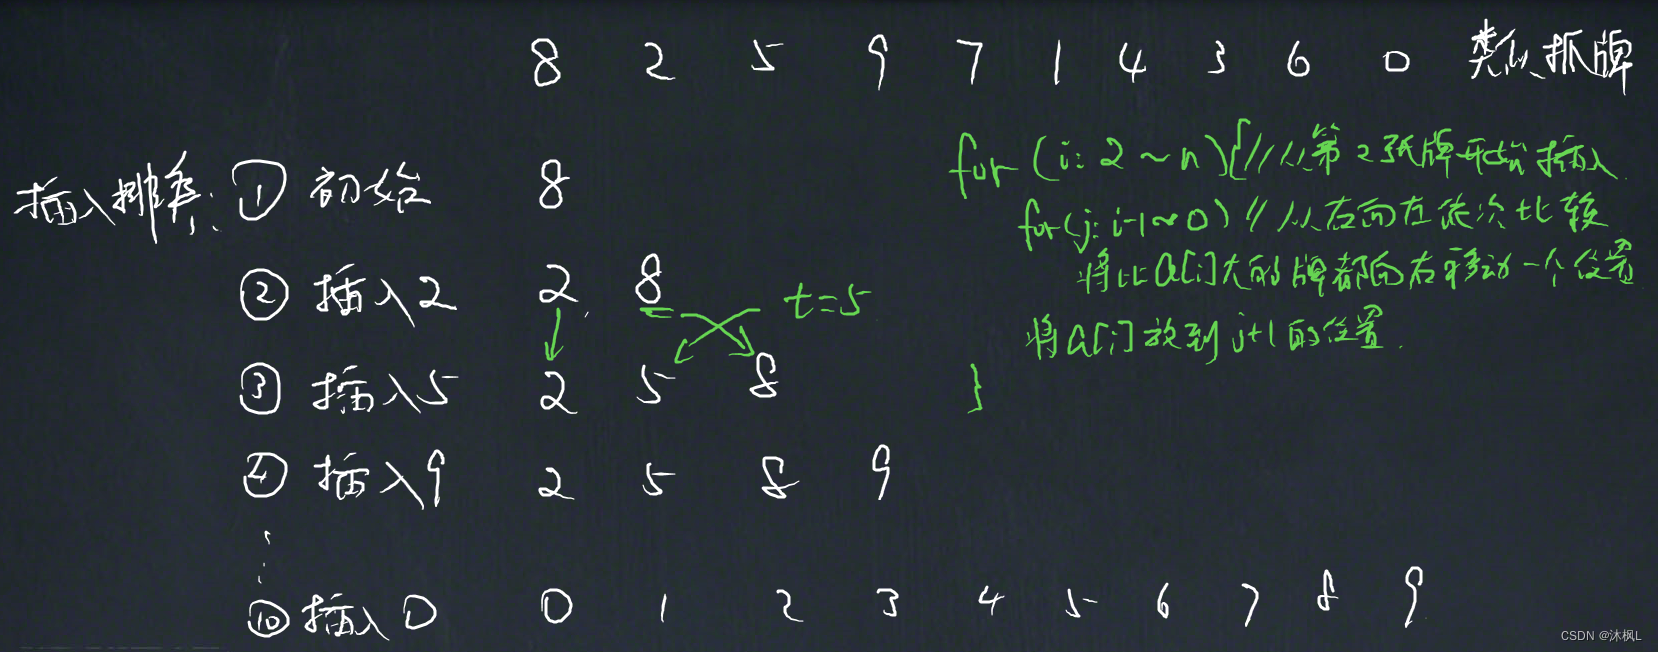 8 2 5 9 7 1 4 3 6 0 类似抓牌
插入排序: ① 初始 8
② 插入2 2 8 t=5
③ 插入5 2 5 8
④ 插入9 2 5 8 9
⑩ 插入0 0 1 2 3 4 5 6 7 8 9
for (i: 2 ~ n) { // 从第2张牌开始插入
for(j: i-1 ~ 0) // 从右向左依次比较
将比a[i]大的牌都向右移动一个位置
将a[i]放到j+1的位置.
}
CSDN @沐枫L